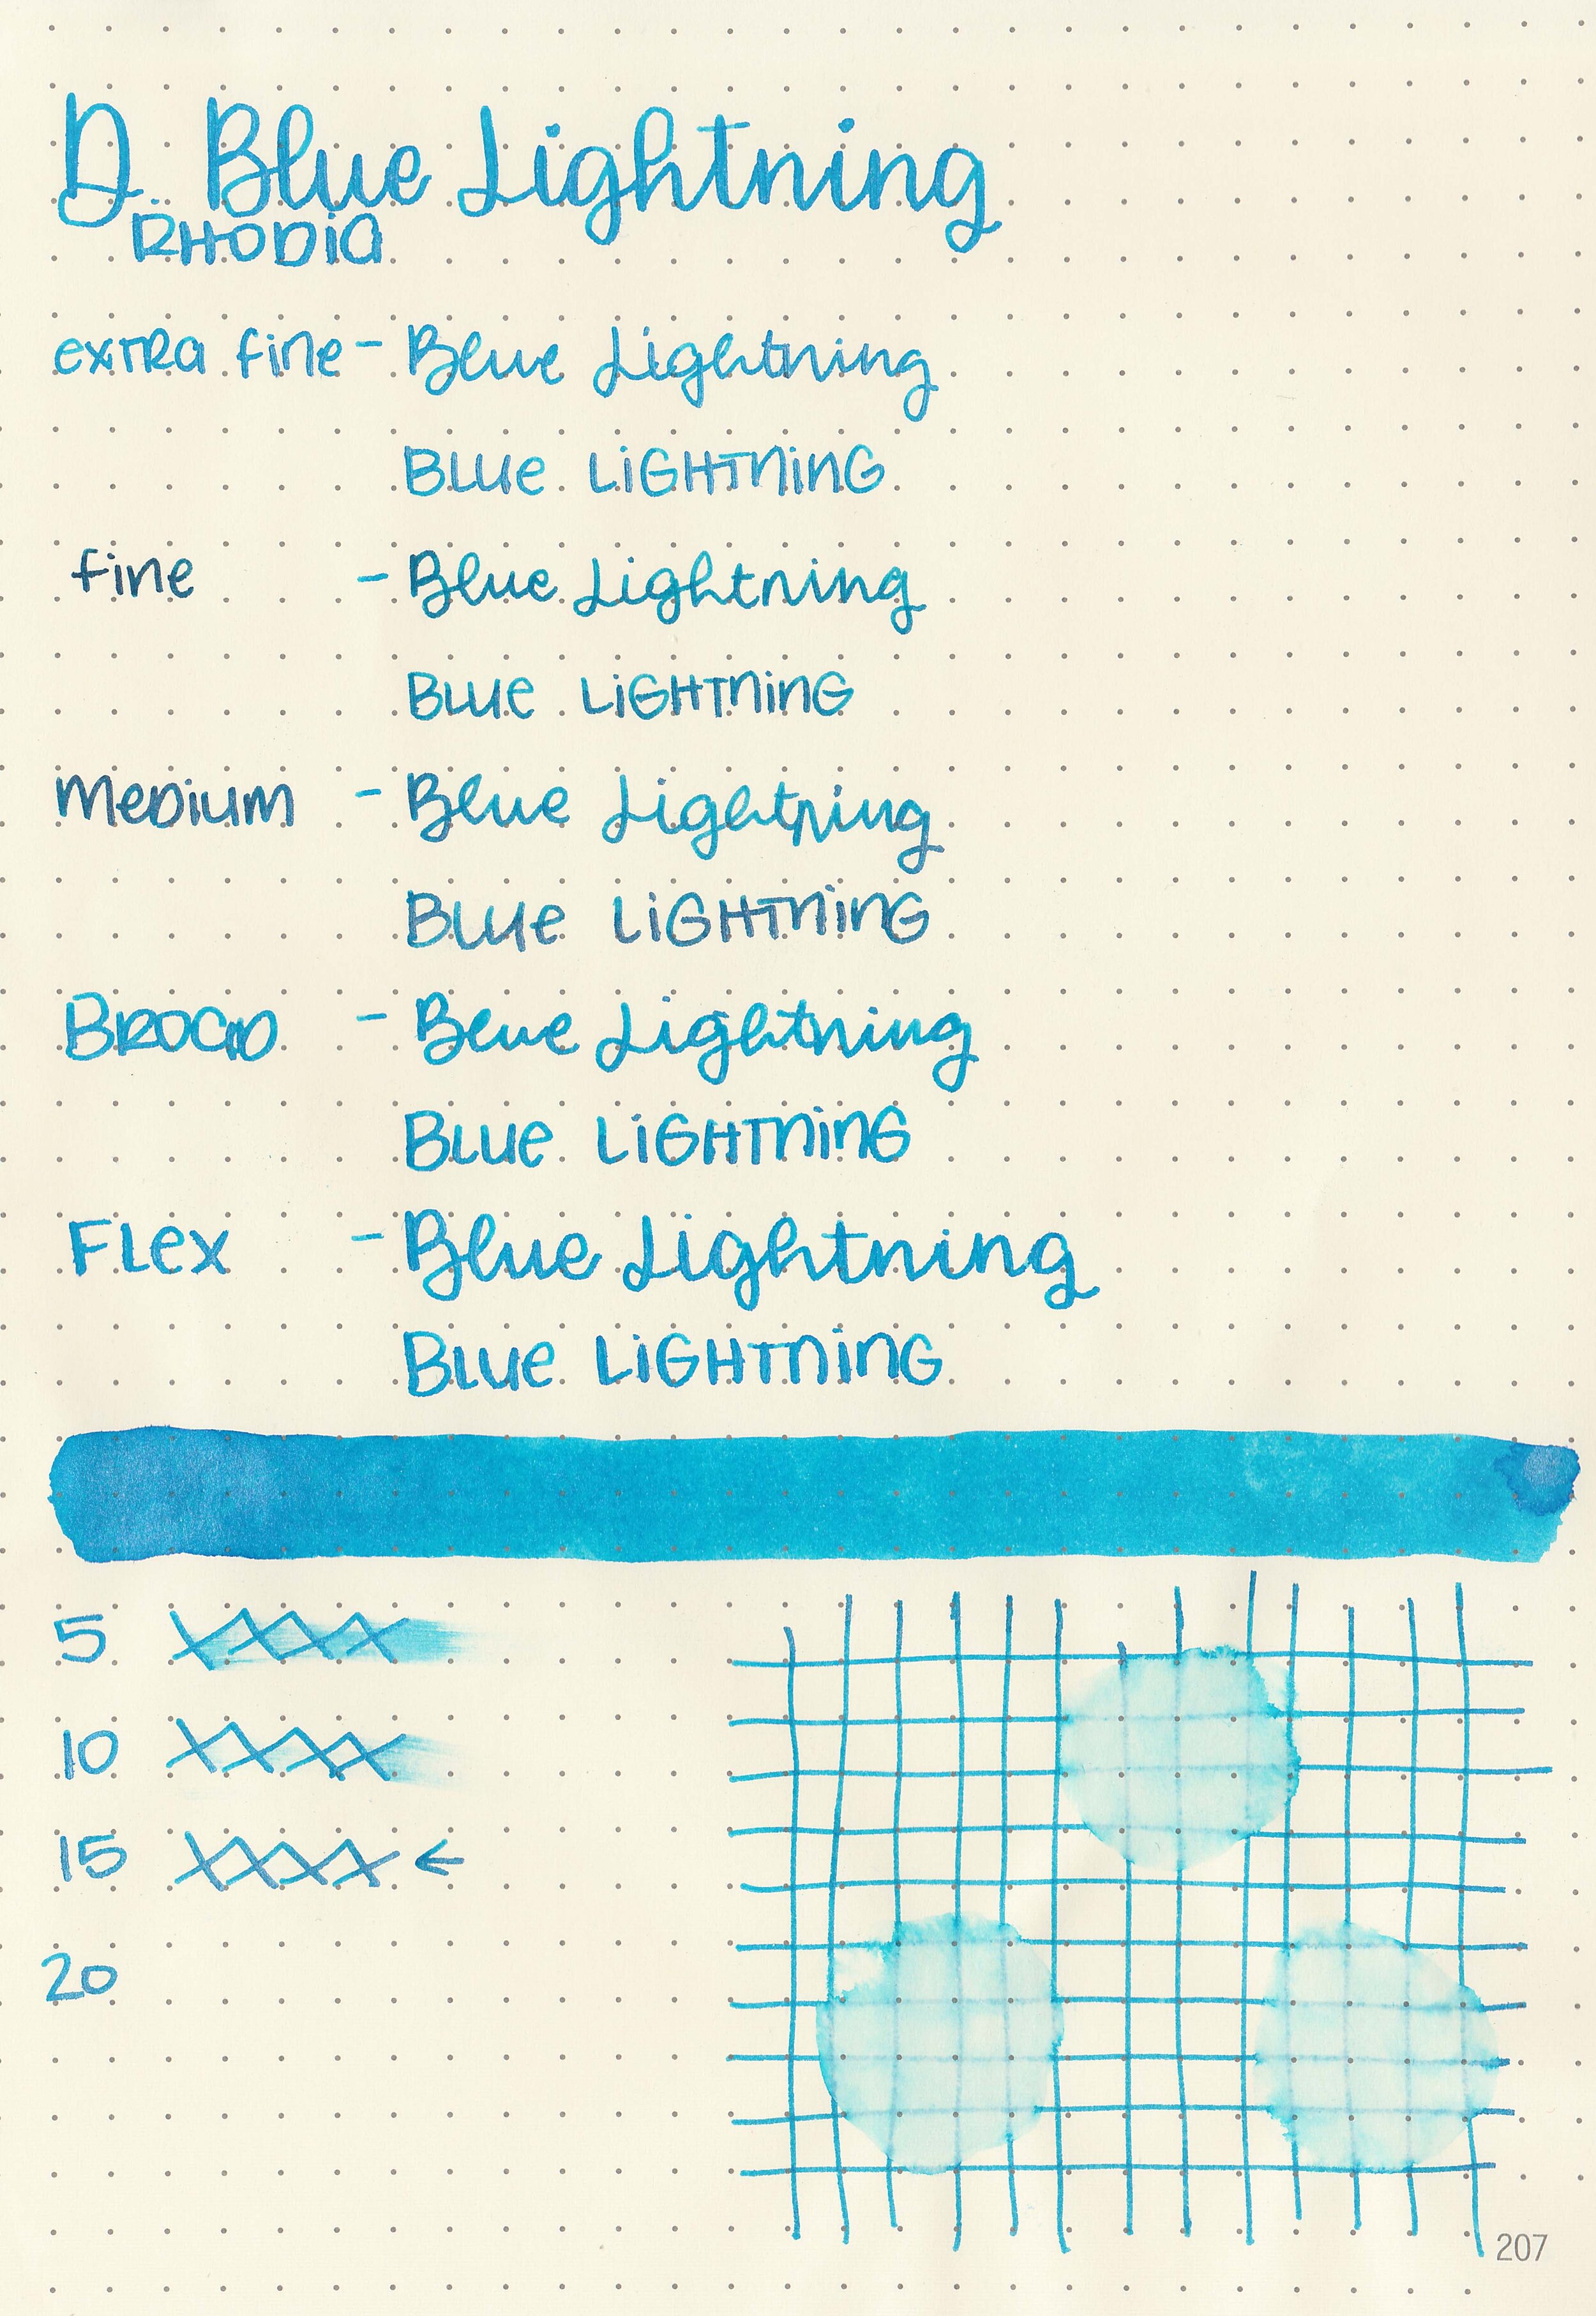 D. Blue Lightning
RHODIA
extra fine - Blue Lightning
BLUE LIGHTNING
fine - Blue Lightning
BLUE LIGHTNING
MEDIUM - Blue Lightning
BLUE LIGHTNING
BROAD - Blue Lightning
BLUE LIGHTNING
FLEX - Blue Lightning
BLUE LIGHTNING
5 XXXX
10 XXXX
15 XXXX ←
20
207